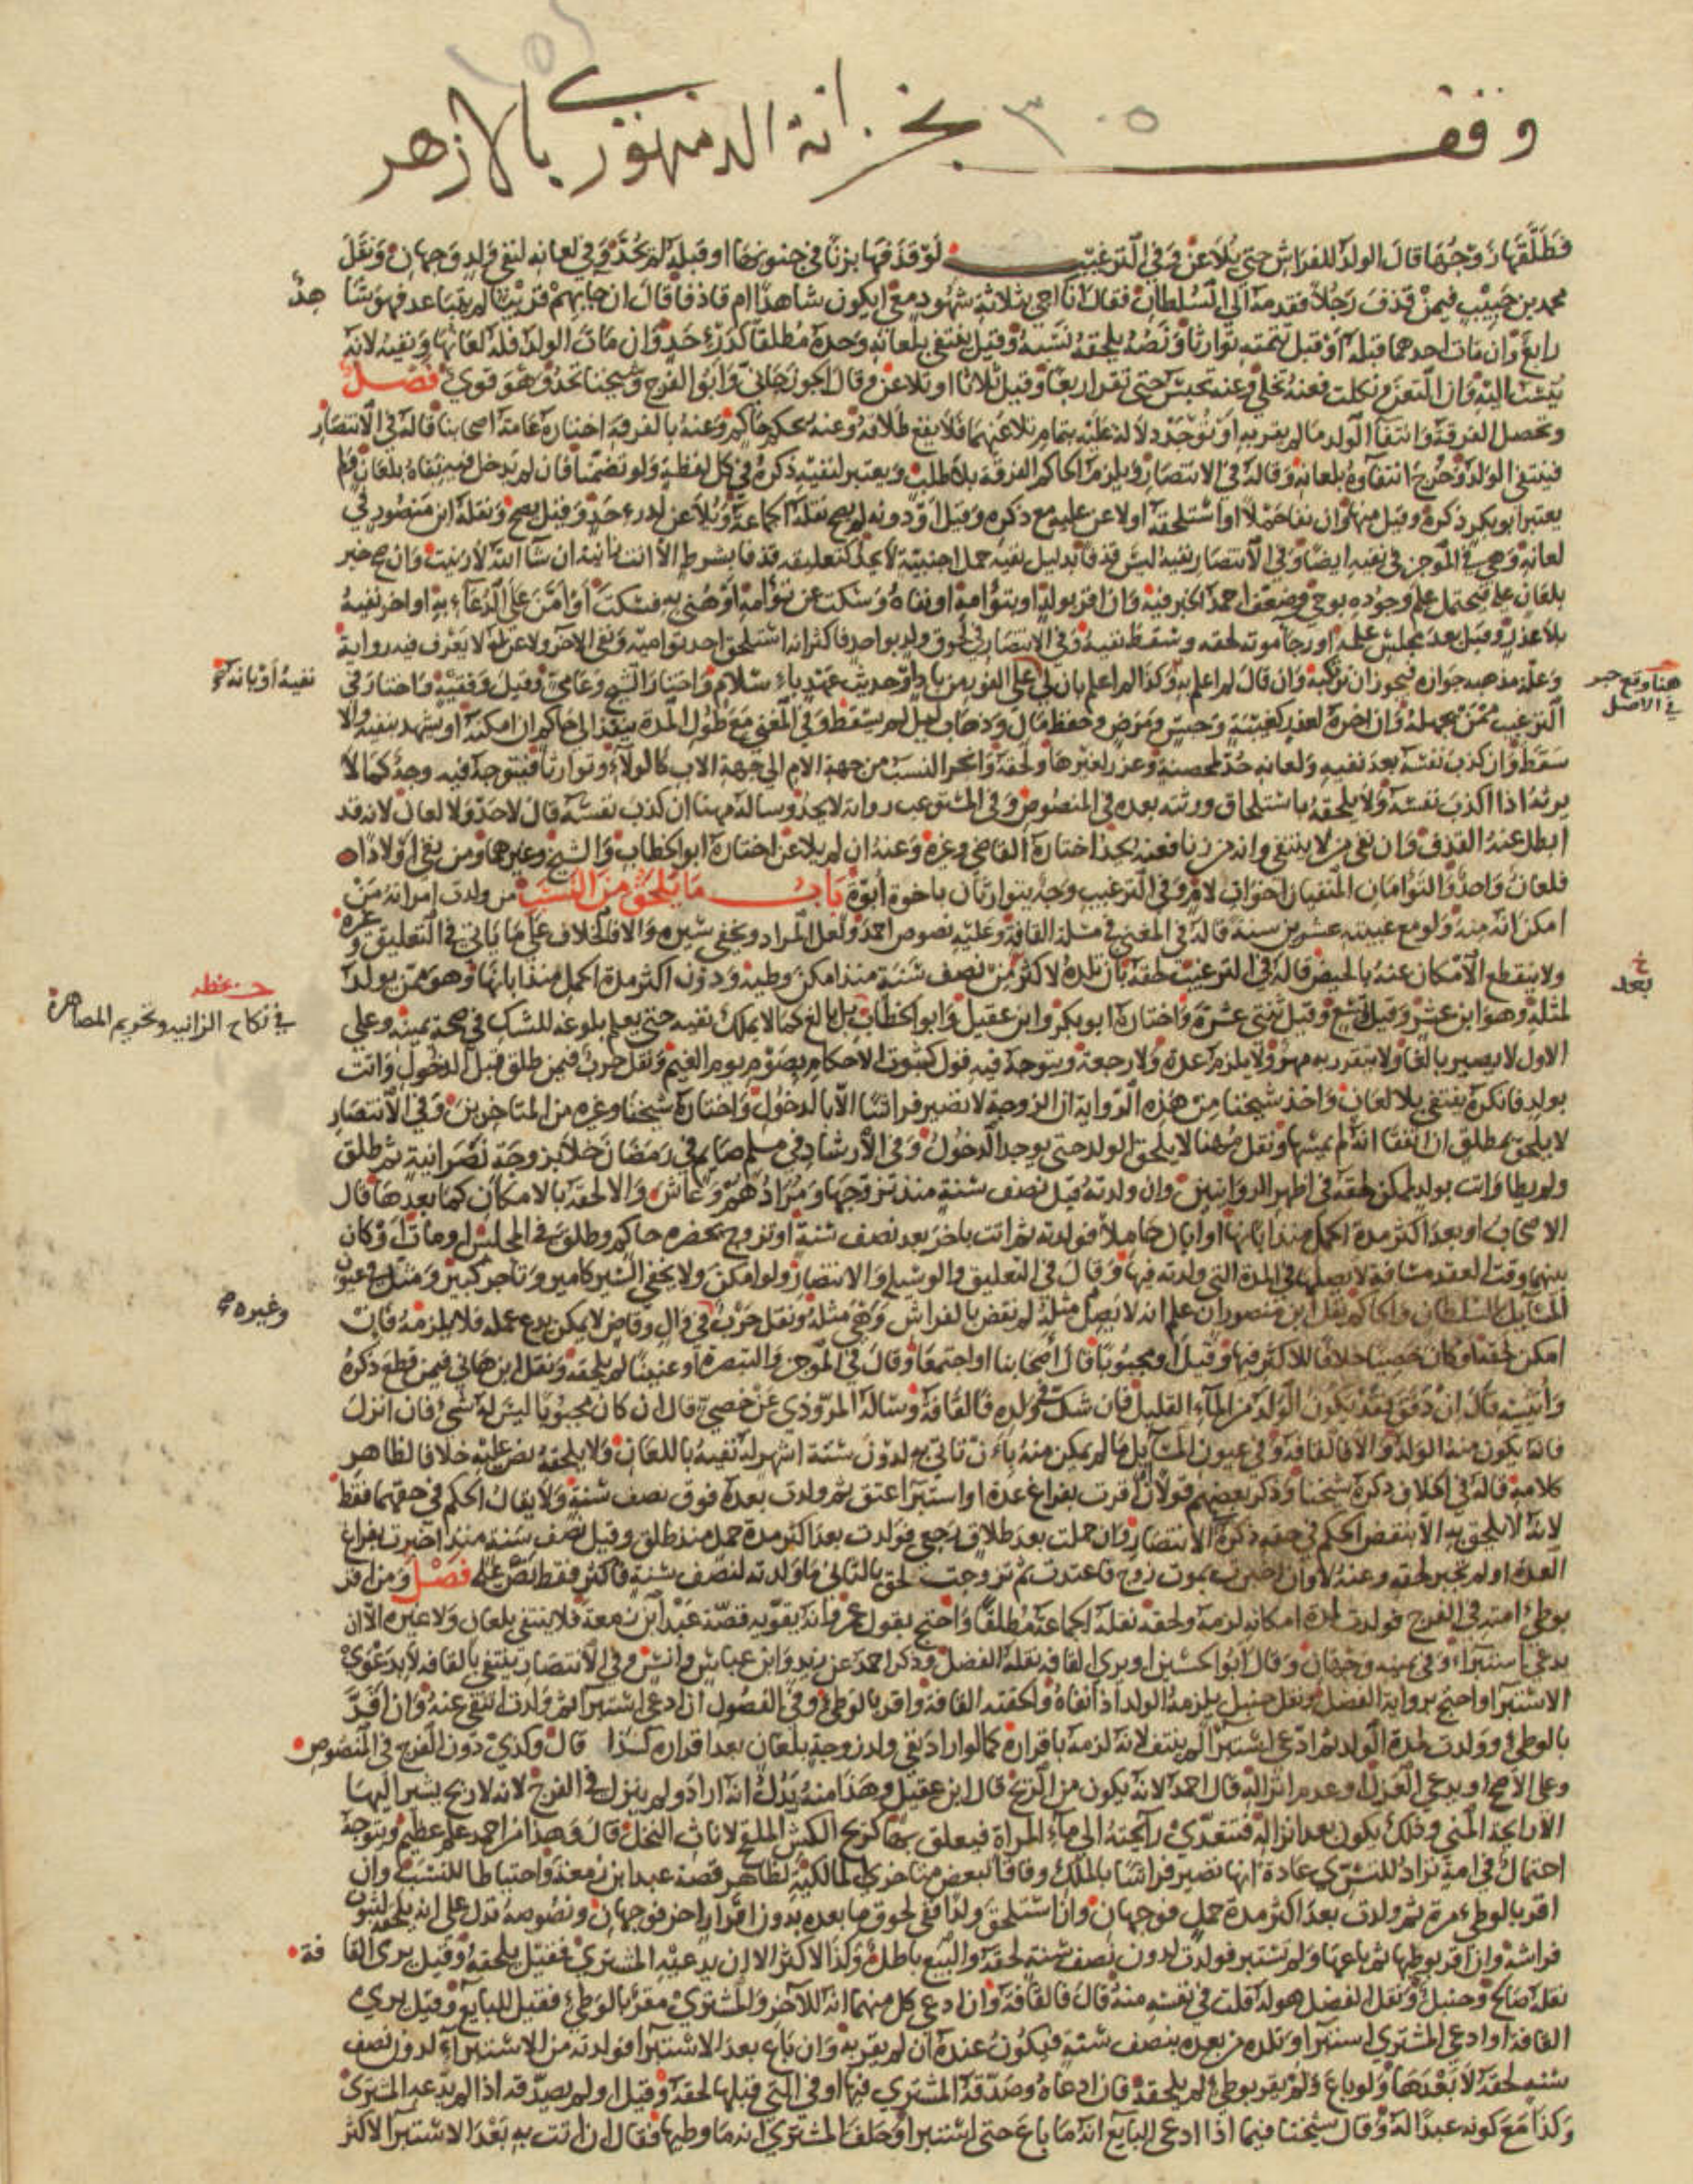 ٣٠٥
وقف بخزانة الدمنهوري بالازهر
فطلقها زوجها قال الولد للفراش حتى يلاعن وفي الترغيب لو قذفها بزنا في جنونها او قبله لم تحد وفي لعانه لنفي ولد وجهان ونقل
محمد بن حبيب فيمن قذف رجلا فقدمه الى السلطان فقال انا اجي بثلاثة شهود معي ايكون شاهدا ام قاذفا قال ان جا بهم قريب لم يتباعد فهو شا هد
رابع وان مات احدهما قبله او قبل تتمته توارثا ونصه يلحقه نسبه وقيل ينتفي بلعانه وحده مطلقا كدرء حد وان مات الولد فله لعانها ونفيه لانه
ينسب اليه وان التعن ونكلت فعنه تخلى وعنه تحبس حتى تقر اربعا وقيل ثلاثا او تلاعن وقال الجوزجاني وابو الفرج وشيخنا تحد وهو قوي فصل
وتحصل الفرقة وانتفا الولد ما لم يقر به او توجد دلالة عليه بتمام تلاعنهما فلا يقع طلاقه وعنه بحكم حاكم وعنه بالفرقة اختاره عامة اصحابنا قاله في الانتصار
فينتفي الولد وخرج انتفاوه بلعانه وقاله في الانتصار ويلزم الحاكم الفرقة بلا طلب ويعتبر لنفيه ذكره في كل لفظة ولو تضمنا فان لم يدخل فيه نفاه بلعان ولم
يعتبر ابو بكر ذكره وقيل منها وان نفا حملا او استلحقه او لاعن عليه مع ذكره وقيل او دونه لم يصح نقله الجماعة ويلاعن لدرء حد وقيل يصح ونقله ابن منصور في
لعانه وهي في الموجز في نفيه ايضا وفي الانتصار نفيه ليس قذفا بدليل نفيه حمل اجنبية لا يحد كتعليقه قذفا بشرط الا انت زانية ان شا الله لا زنيت وان صح خبر
وان اقر بولد او بتوامه او نفاه وسكت عن توامه او هنئ به فسكت او امن على الدعاء به او اخر نفيه
بلا عذر وقيل بعد مجلس علمه او رجا موته لحقه وسقط نفيه وفي الانتصار في لحوق ولد بواحد فاكثر
نفيه او بانه لخ
هنا وقع خبر في الاصل
سقط وان كذب نفسه بعد نفيه ولعانه حد لمحصنة وعزر لغيرها ولحقه وانجر النسب من جهة الام الى جهة الاب كالولاء وتوارثا فيتوجه فيه وجه كما لا
يرثه اذا اكذب نفسه ولا يلحقه باستلحاق ورثته بعده في المنصوص وفي المستوعب رواية لا يحد وساله مهنا ان كذب نفسه قال لا حد ولا لعان لانه قد
ابطل عنه القذف وان نفى من لا ينتفي وانه من زنا فعنه يحد اختاره القاضي وغيره وعنه ان لم يلاعن اختاره ابو الخطاب والشيخ وغيرهما ومن نفى اولادا
فلعان واحد والتوامان المنفيان اخوان لام وفي الترغيب وجه يتوارثان باخوة ابوة باب ما يلحق من النسب من ولدت امراته من
امكن انه منه ولو مع غيبته عشرين سنة قاله في المغني في مسلة القافة وعليه نصوص احمد ولعل المراد ويخفى سيره والا فالخلاف على ما ياتي في التعليق وغيره
ولا ينقطع الامكان عنه بالحيض قاله في الترغيب لحقه بان تلده لاكثر من نصف سنة منذ امكن وطيه ودون اكثر مدة الحمل منذ ابانها وهو ممن يولد
خ بعد
لمثله وهو ابن عشر وقيل تسع وقيل ثنتي عشرة واختاره ابو بكر وابن عقيل وابو الخطاب بل بالغ كما لا يملك نفيه حتى يعلم بلوغه للشك في صحة يمينه وعلى
في نكاح الزانيه وتحريم المصاهرة
الاول لا يصير بالغا ولا يتقرر به مهر ولا يلزم عدة ولا رجعة ويتوجه فيه قول كثبوت الاحكام بصوم يوم الغيم ونقل حرب فيمن طلق قبل الدخول واتت
بولد فانكره ينتفي بلا لعان واخذ شيخنا من هذه الرواية ان الزوجة لا تصير فراشا الا بالدخول واختاره شيخنا وغيره من المتاخرين وفي الانتصار
لا يلحق بمطلق ان اتفقا انه لم يمسها ونقل مهنا لا يلحق الولد حتى يوجد الدخول وفي الارشاد في مسلم صايم في رمضان خلا بزوجة نصرانية ثم طلق
ولم يطا واتت بولد لممكن لحقه في اظهر الروايتين وان ولدته قبل نصف سنة منذ تزوجها ومرادهم وعاش والا لحقه بالامكان كما بعدها قال
الاصحاب او بعد اكثر مدة الحمل منذ ابانها او ابان حاملا فولدته ثم اتت باخر بعد نصف سنة او تزوج بمحضر حاكم وطلق في المجلس او مات او كان
بينهما وقت العقد مسافة لا يصلها في المدة التي ولدته فيها وقال في التعليق والوسيلة والانتصار ولو امكن ولا يخفى السير كامير وتاجر كبير ومثل في عيون
المسايل بالسلطان والحاكم نقل ابن منصور ان علم انه لا يصل مثله لم نقض بالفراش وهي مثله ونقل حرب في وال وقاض لا يمكن يدع عمله فلا يلزمه فان
وغيره
امكن لحقه او كان خصيا خلافا للاكثر فيها وقيل او مجبوبا قال اصحابنا او اجتمعا وقال في الموجز والتبصرة او عنينا لم يلحقه ونقل ابن هاني فيمن قطع ذكره
وانثييه قال ان دفق فقد يكون الولد من الماء القليل فان شك في ولده فالقافة وساله المروذي عن خصي قال ان كان مجبوبا ليس له شي فان انزل
فانه يكون منه الولد والا فالقافة وفي عيون المسايل ما لم يمكن منه بان تاتي به لدون ستة اشهر له نفيه باللعان ولا يلحقه نص عليه خلافا لظاهر
كلامه قاله في الخلاف ذكره شيخنا وذكر بعضهم قولا ان اقرت بفراغ عدة او استبرا عتق ثم ولدت بعده فوق نصف سنة ولا يقال الحكم في حقهما فقط
لانه لا يلحق به الا بنقض الحكم في حقه ذكره الانتصار وان حملت بعد طلاق رجعي فولدت بعد اكثر مدة حمل منذ طلق وقيل نصف سنة منذ اخبرت بفراغ
العدة او لم تخبر لحقه وعنه لا وان اخبرت بموت زوج فاعتدت ثم تزوجت لحق بالثاني ما ولدته لنصف سنة فاكثر فقط نص عليه فصل ومن اقر
بوطئ امته في الفرج فولدت لمدة امكانه لزمه ولحقه نقله الجماعة مطلقا واحتج بقول عمر وانه يقويه قصة عبد ابن زمعة فلا ينتفي بلعان ولا غيره الا ان
يدعي استبراء وفي يمينه وجهان وقال ابو الحسين او يرى القافة نقله الفضل وذكر احمد عن زيد وابن عباس وانس وفي الانتصار ينتفي بالقافة لا بدعوى
الاستبرا واحتج برواية الفضل ونقل حنبل يلزمه الولد اذا نفاه والحقته القافة واقر بالوطئ وفي الفصول ان ادعى استبرا ثم ولدت انتفى عنه وان اقر
بالوطئ وولدت لمدة الولد ثم ادعى استبرا لم ينتف لانه لزمه باقراره كما لو اراد نفي ولد زوجة بلعان بعد اقراره كذا قال وكذا دون الفرج في المنصوص
وعلى الاصح او يدعي العزل او عدم انزاله قال احمد لانه يكون من الريح قال ابن عقيل وهذا منه يدل انه اراد ولم ينزل في الفرج لانه لا ريح يشير اليها
الا رايحة المني وذلك يكون بعد انزاله فتتعدى رايحته الى ماء المراة فيعلق بها كريح الكش الملقح لاناث النخل قال وهذا من احمد علم عظيم ويتوجه
احتمال في امة تراد للتسري عادة انها تصير فراشا بالملك وفاقا لبعض متاخري المالكية لظاهر قصة عبد ابن زمعة واحتياطا للنسب وان
اقر بالوطئ مرة ثم ولدت بعد اكثر مدة حمل فوجهان وان استلحق ولدا ففي لحوق ما بعده بدون اقرار اخر فوجهان ونصوصه تدل على انه يلحقه لثبوت
فراشه وان اقر بوطيها ثم باعها ولم تستبر فولدت لدون نصف سنة لحقه والبيع باطل وكذا الاكثر الا ان يدعيه المشتري فقيل يلحقه وقيل يرى القا فة
نقله صالح وحنبل ونقل الفضل هو له قلت في نفسه منه قال فالقافة وان ادعى كل منهما انه للاخر والمشتري مقر بالوطئ فقيل للبايع وقيل يرى
القافة او ادعى المشتري استبرا وتلده من بعده بنصف سنة فيكون عنده ان لم يقر به وان باع بعد الاستبرا فولدته من الاستبراء لدون نصف
سنه لحقه لا بعدها ولو باع ولم يقر بوطئ لم يلحقه فان ادعاه وصدقه المشتري فيها او في التي قبلها لحقه وقيل او لم يصدقه اذا لم يدعه المشتري
وكذا مع كونه عبدا له وقال شيخنا فيما اذا ادعى البايع انه ما باع حتى استبرا وحلف المشتري انه ما وطيها فقال ان اتت به بعد الاستبرا لاكثر